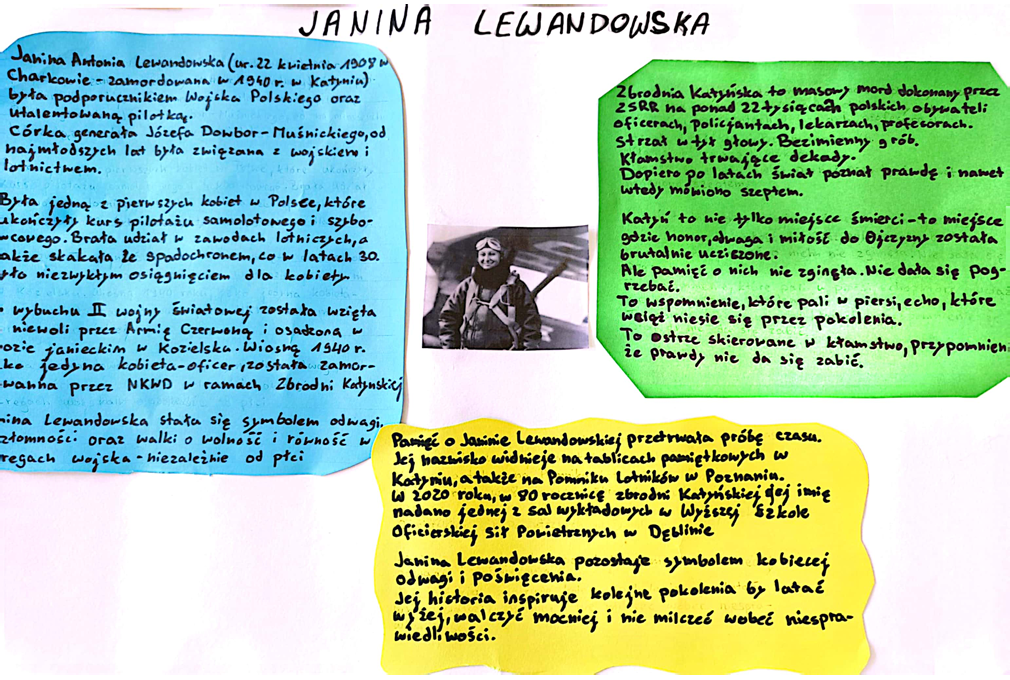 JANINA LEWANDOWSKA
Janina Antonia Lewandowska (ur. 22 kwietnia 1908 w
Charkowie - zamordowana w 1940 r. w Katyniu)
była podporucznikiem Wojska Polskiego oraz
utalentowaną pilotką.
Córka generała Józefa Dowbor-Muśnickiego, od
najmłodszych lat była związana z wojskiem i
lotnictwem.
Była jedną z pierwszych kobiet w Polsce, które
ukończyły kurs pilotażu samolotowego i szybo-
wcowego. Brała udział w zawodach lotniczych, a
akże skakała ze spadochronem, co w latach 30.
yło niezwykłym osiągnięciem dla kobiety
wybuchu II wojny światowej została wzięta
niewoli przez Armię Czerwoną i osadzona w
ozie janieckim w Kozielsku. Wiosną 1940 r.
ko jedyna kobieta-oficer, została zamor-
wanna przez NKWD w ramach Zbrodni Katynskiej
nina Lewandowska stała się symbolem odwagi,
złomności oraz walki o wolność i równość w
regach wojska - niezależnie od płci
Zbrodnia Katyńska to masowy mord dokonany przez
ZSRR na ponad 22 tysiącach polskich obywateli
oficerach, Policjantach, lekarzach, profesorach.
Strzał w tył głowy. Bezimienny grób.
Kłamstwo trwające dekady.
Dopiero po latach świat poznał prawdę i nawet
wtedy mówiono szeptem.
Katyń to nie tylko miejsce śmierci - to miejsce
gdzie honor, odwaga i miłość do Ojczyzny została
brutalnie uciszone.
Ale pamięć o nich nie zginęła. Nie dała się pog-
rzebać.
To wspomnienie, które pali w piersi, echo, które
wciąż niesie się przez pokolenia.
To ostrze skierowane w kłamstwo, przypomnien
że prawdy nie da się zabić.
Pamięć o Janinie Lewandowskiej przetrwała próbę czasu.
Jej nazwisko widnieje na tablicach pamiętkowych w
Katyniu, a także na Pomniku Lotników w Poznaniu.
W 2020 roku, w 80 rocznicę zbrodni Katyńskiej jej imię
nadano jednej z sal wykładowych w Wyższej Szkole
Oficierskiej Sił Powietrznych w Dęblinie
Janina Lewandowska pozostaje symbolem kobiecej
odwagi i poświęcenia.
Jej historia inspiruje kolejne pokolenia by latać
wyżej, walczyć mocniej i nie milczeć wobec niespra-
wiedliwości.